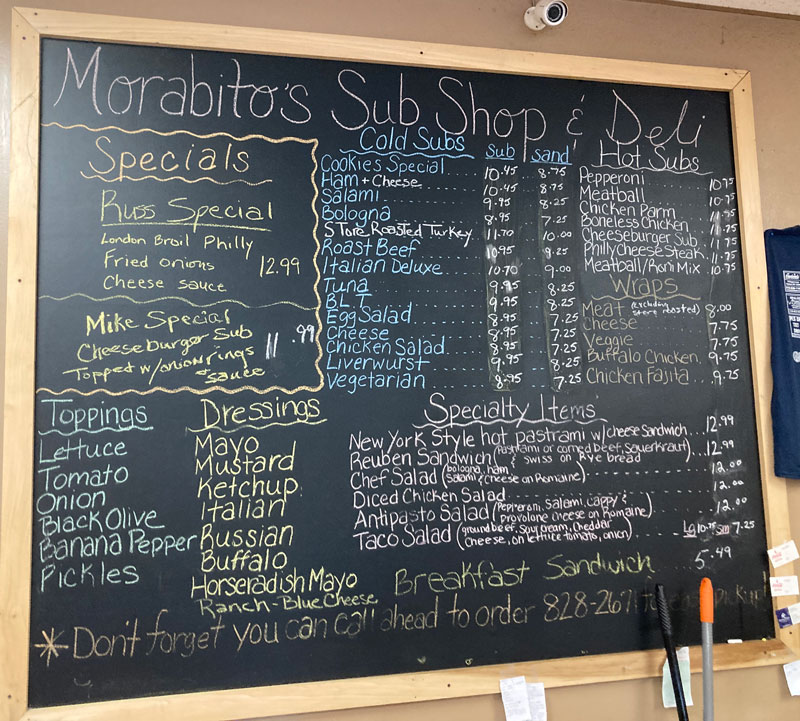 Morabito's Sub Shop & Deli
Specials
Russ Special
London Broil Philly
Fried onions 12.99
Cheese sauce
Mike Special
Cheeseburger Sub 11.99
Topped w/onion rings
& sauce
Cold Subs Sub Sand
Cookies Special 10.45 8.75
Ham + Cheese 10.45 8.75
Salami 9.95 8.25
Bologna 8.95 7.25
Store Roasted Turkey 11.70 10.00
Roast Beef 10.95 9.25
Italian Deluxe 10.70 9.00
Tuna 9.95 8.25
B.L.T. 9.95 8.25
Egg Salad 8.95 7.25
Cheese 8.95 7.25
Chicken Salad 8.95 7.25
Liverwurst 9.95 8.25
Vegetarian 8.95 7.25
Hot Subs
Pepperoni 10.75
Meatball 10.75
Chicken Parm 11.75
Boneless Chicken 11.75
Cheeseburger Sub 11.75
Philly Cheese Steak 11.75
Meatball/Roni Mix 10.75
Wraps
Meat (excluding store roasted) 8.00
Cheese 7.75
Veggie 7.75
Buffalo Chicken 9.75
Chicken Fajita 9.75
Toppings
Lettuce
Tomato
Onion
Black Olive
Banana Pepper
Pickles
Dressings
Mayo
Mustard
Ketchup
Italian
Russian
Buffalo
Horseradish Mayo
Ranch-Blue Cheese
Specialty Items
New York Style hot pastrami w/cheese Sandwich 12.99
Reuben Sandwich (Pastrami or corned beef, Sauerkraut & swiss on Rye bread 12.99
Chef Salad (bologna, ham, salami & cheese on Romaine) 12.00
Diced Chicken Salad 12.00
Antipasto Salad (pepperoni, salami, cappy & provolone cheese on Romaine) 12.00
Taco Salad (ground beef, sour cream, cheddar cheese, on lettuce, tomato, onion) Lg 10.75 Sm 7.25
Breakfast Sandwich 5.49
*Don't forget you can call ahead to order 828-267